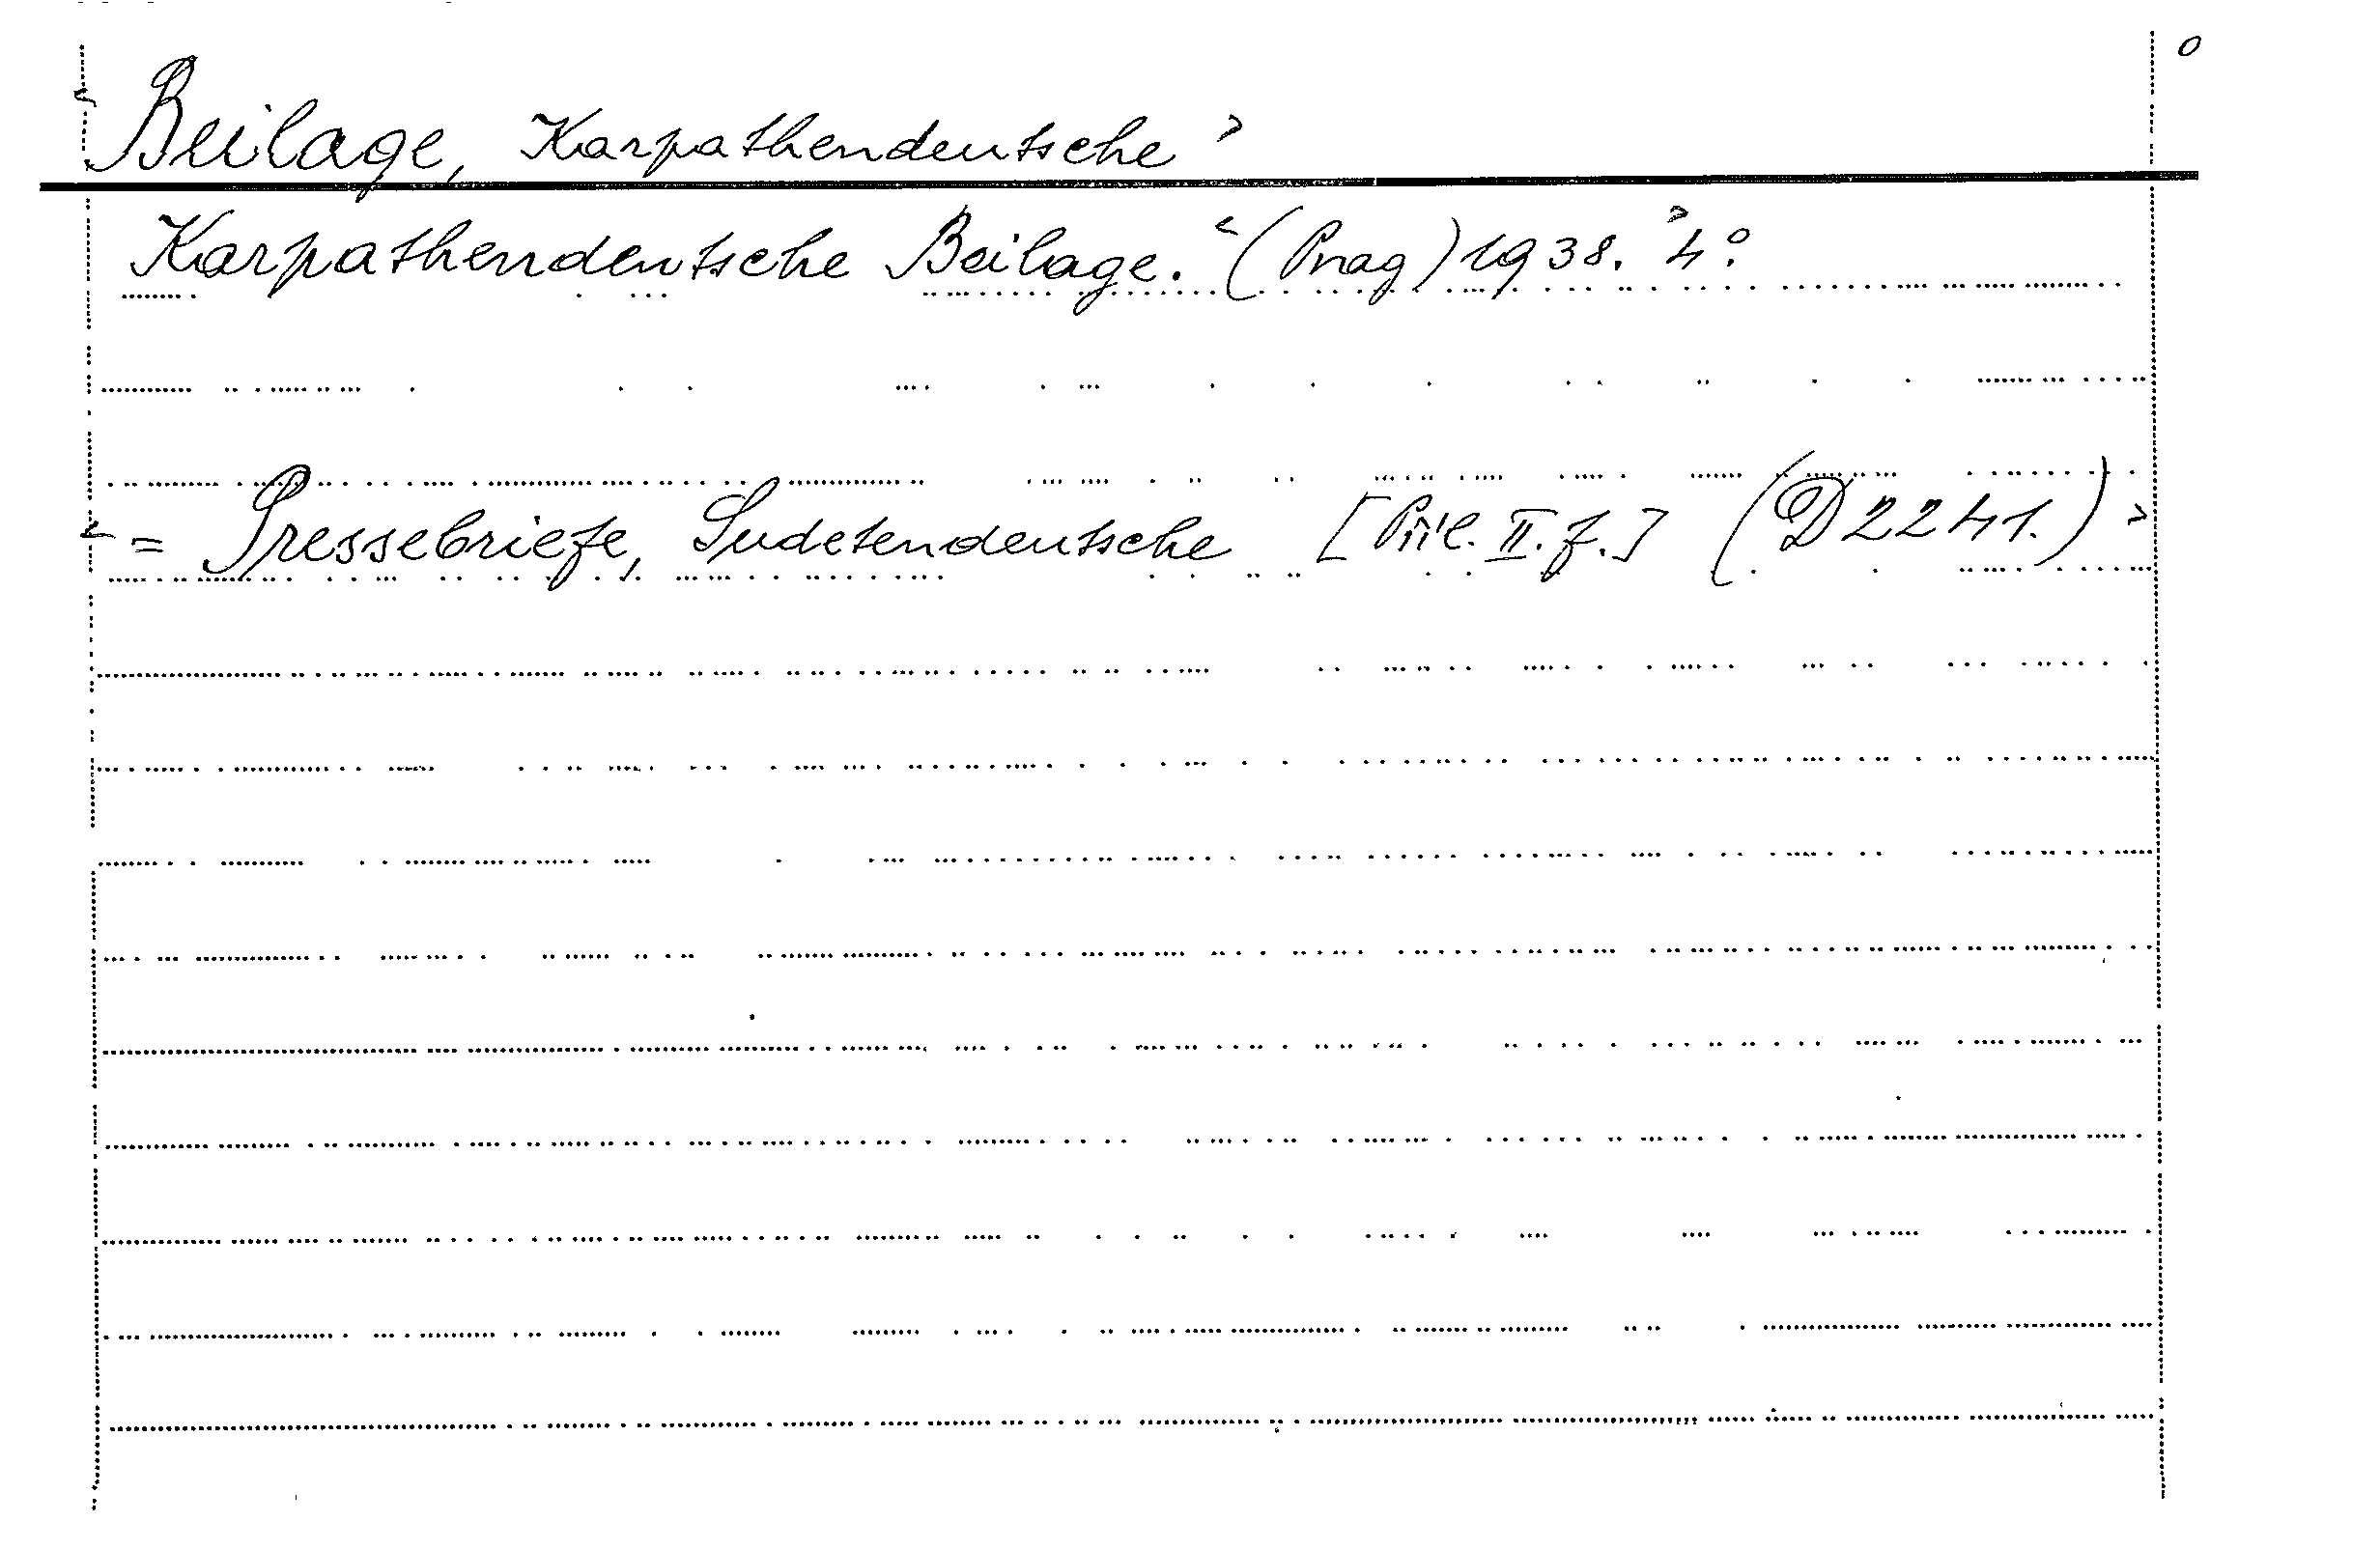 o
‹Beilage, Karpathendeutsche›
Karpathendeutsche Beilage. ‹(Prag) 1938.› 4°.
‹= Pressebriefe, Sudetendeutsche [Příl. II. f.] (D 2241.)›